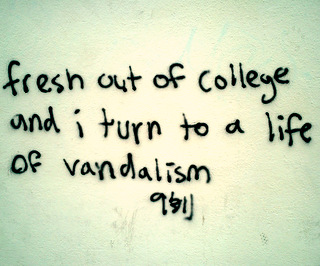 fresh out of college
and i turn to a life
of vandalism